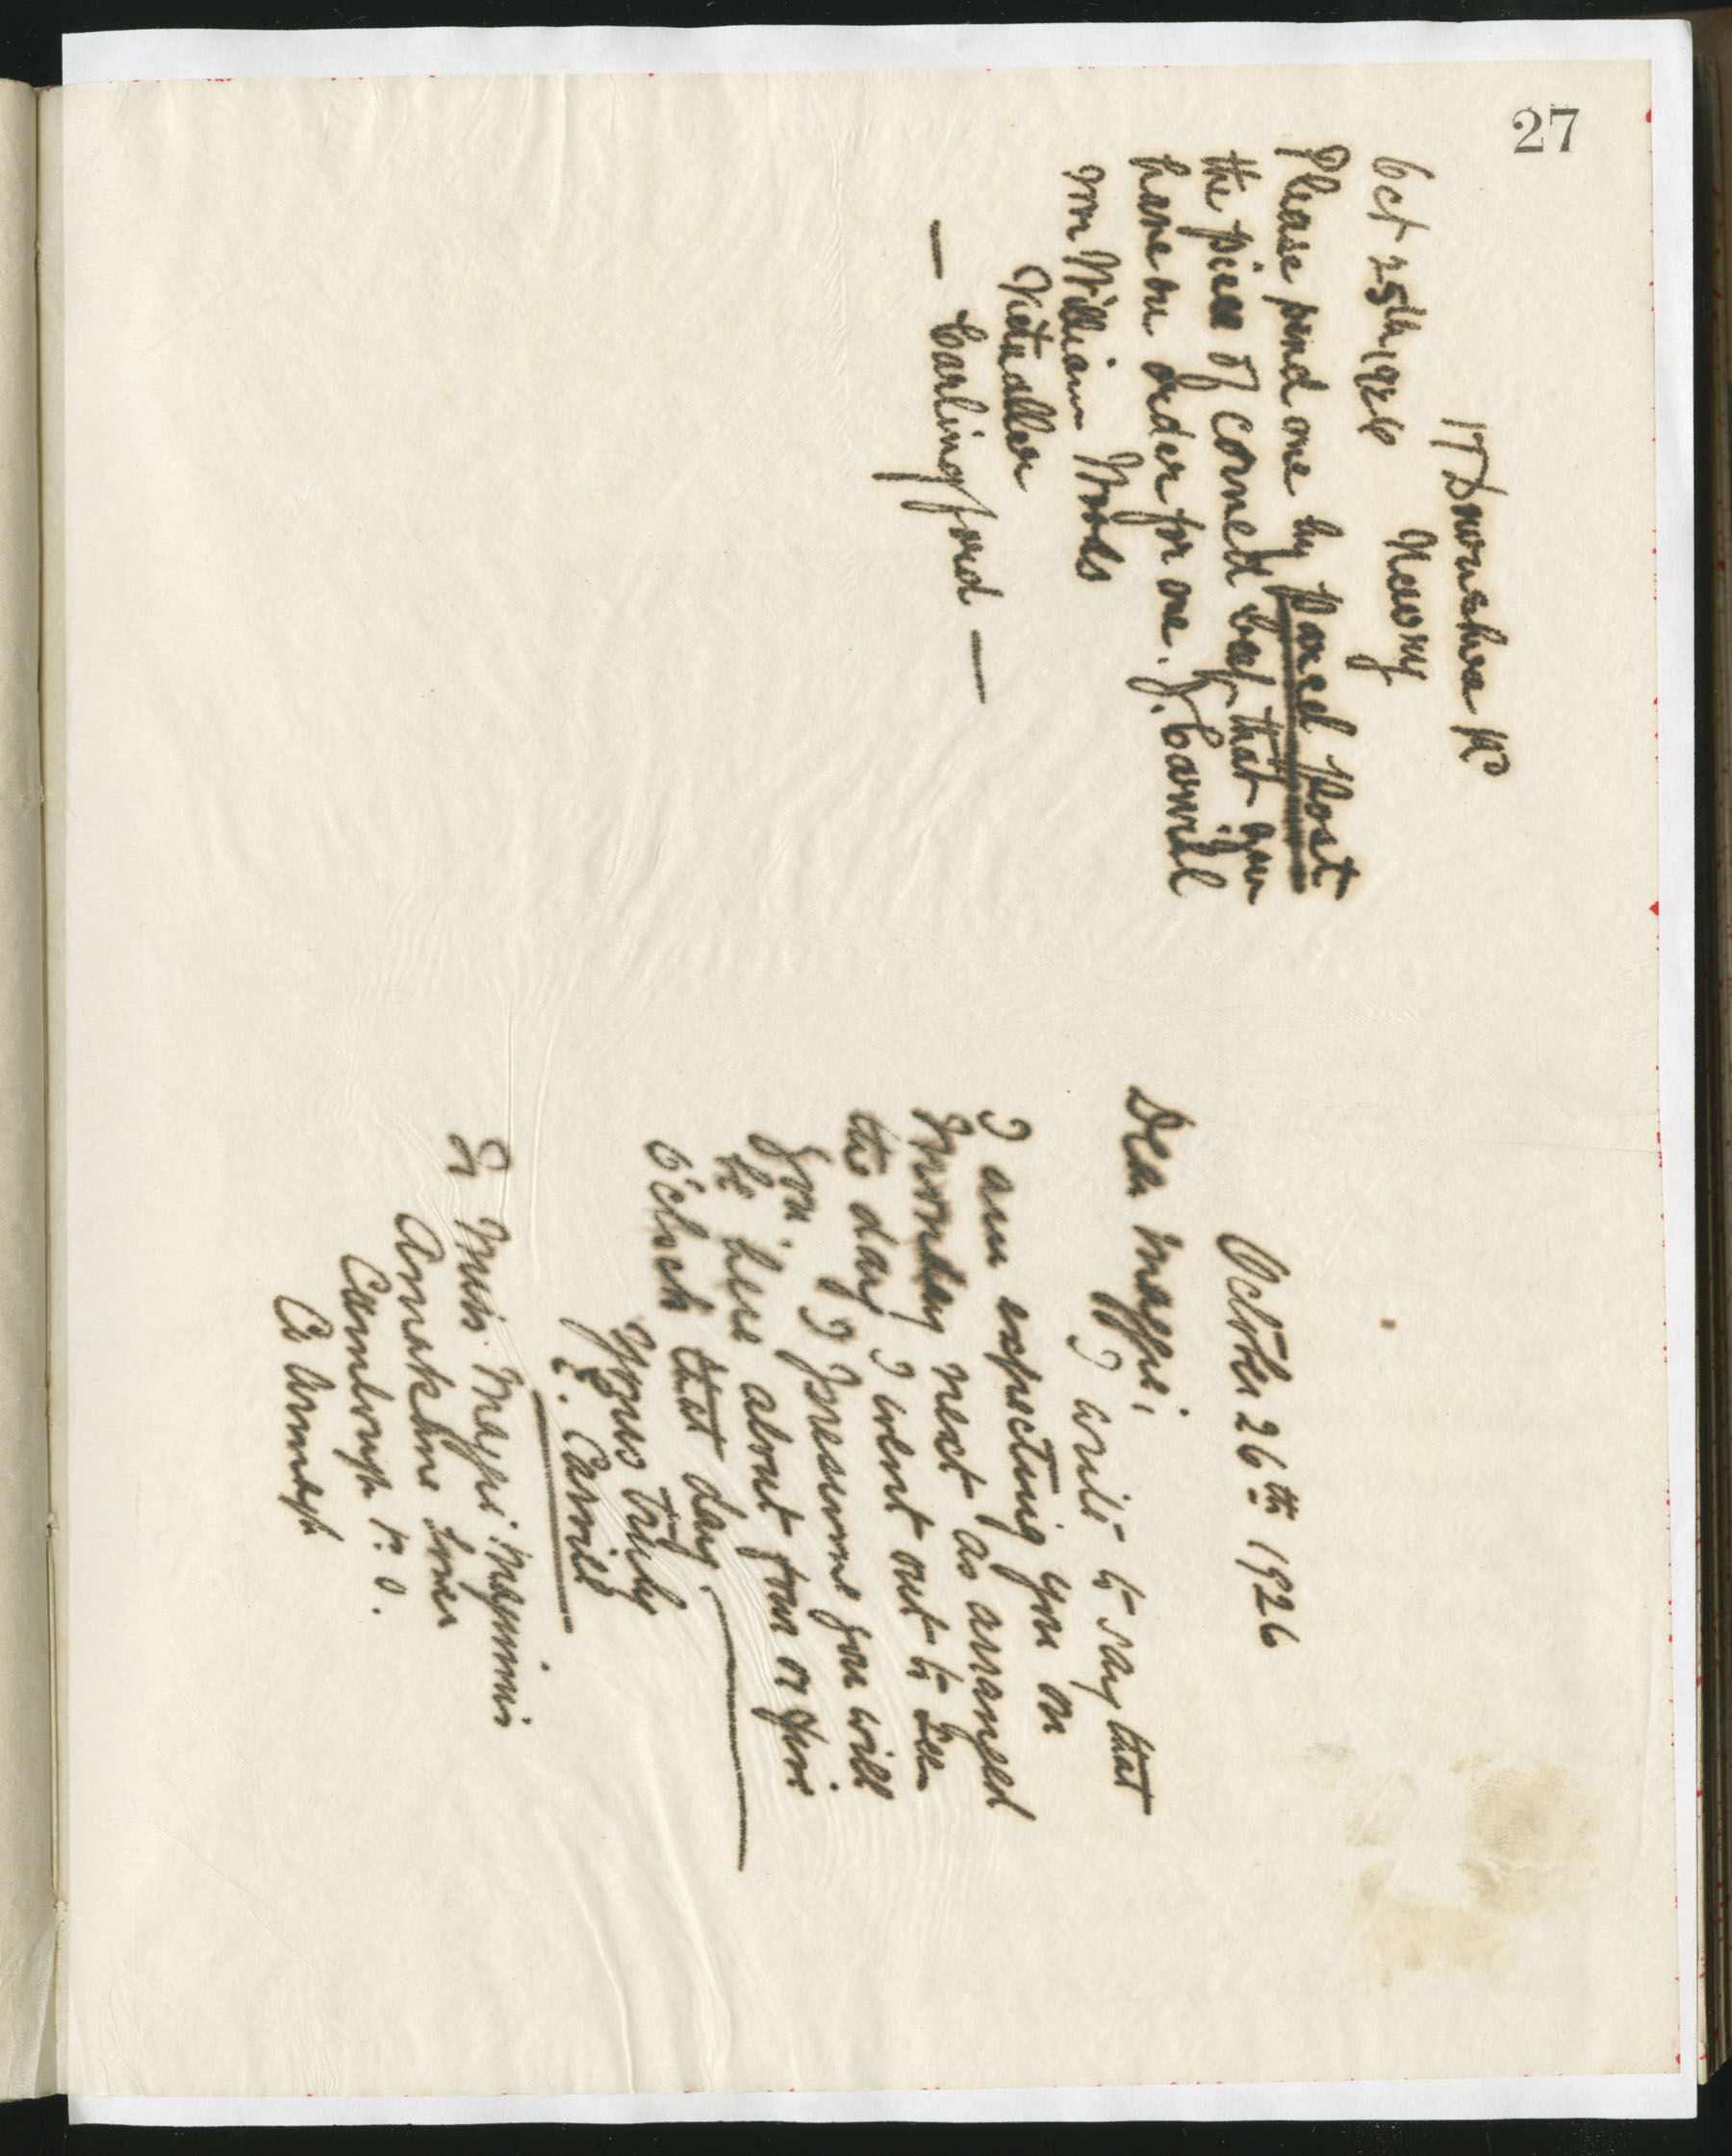 27
17 Downshire Rd
Newry
Oct 25th, 1926
Please send one by parcel post
the piece of corned beef that you
have on order for me. J. Carvill
Mr William Woods
Victualler
— Carlingford —
October 26th 1926
Dear Maggie,
I write to say that
I am expecting you on
Monday next as arranged
the day I went out to see
you. I presume you will
be here about four or five
o'clock that day.
Yours truly
E. Carvill
To Miss Maggie Maginnis
Lower
Camlough P.O.
Co Armagh